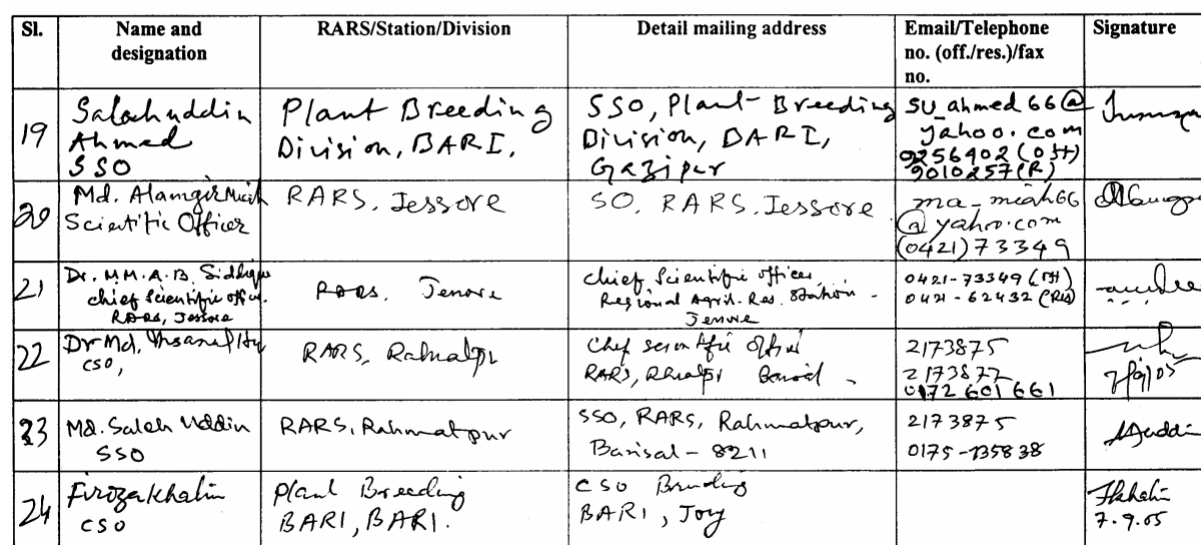 Sl.
Name and
designation
RARS/Station/Division
Detail mailing address
Email/Telephone
no. (off./res.)/fax
no.
Signature
19
Salahuddin
Ahmed
SSO
Plant Breeding
Division, BARI,
SSO, Plant Breeding
Division, BARI,
Gazipur
su_ahmed66@
yahoo.com
9256402 (off)
9010257 (R)
20
Md. Alamgir Miah
Scientific Officer
RARS, Jessore
SO, RARS, Jessore
ma_miah66
@yahoo.com
(0421) 73349
21
Dr. M.M.A.B. Siddique
Chief Scientific Officer
RARS, Jessore
RARS, Jessore
Chief Scientific Officer
Regional Agril. Res. Station
Jessore
0421-73349 (off)
0421-62432 (Res)
22
Dr Md.
CSO,
RARS, Rahmatpur
Chief Scientific Officer
RARS,
2173875
2173877
0172601661
23
Md. Saleh Uddin
SSO
RARS, Rahmatpur
SSO, RARS, Rahmatpur,
Barisal-8211
2173875
0175-135838
24
Firoza Khatun
CSO
Plant Breeding
BARI, BARI.
CSO Breeding
BARI, Joy
7.9.05